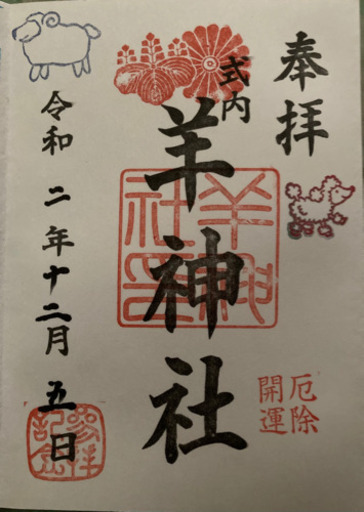 奉拝
式内
羊神社
羊神社印
厄除
開運
令和二年十二月五日
参拝
記念